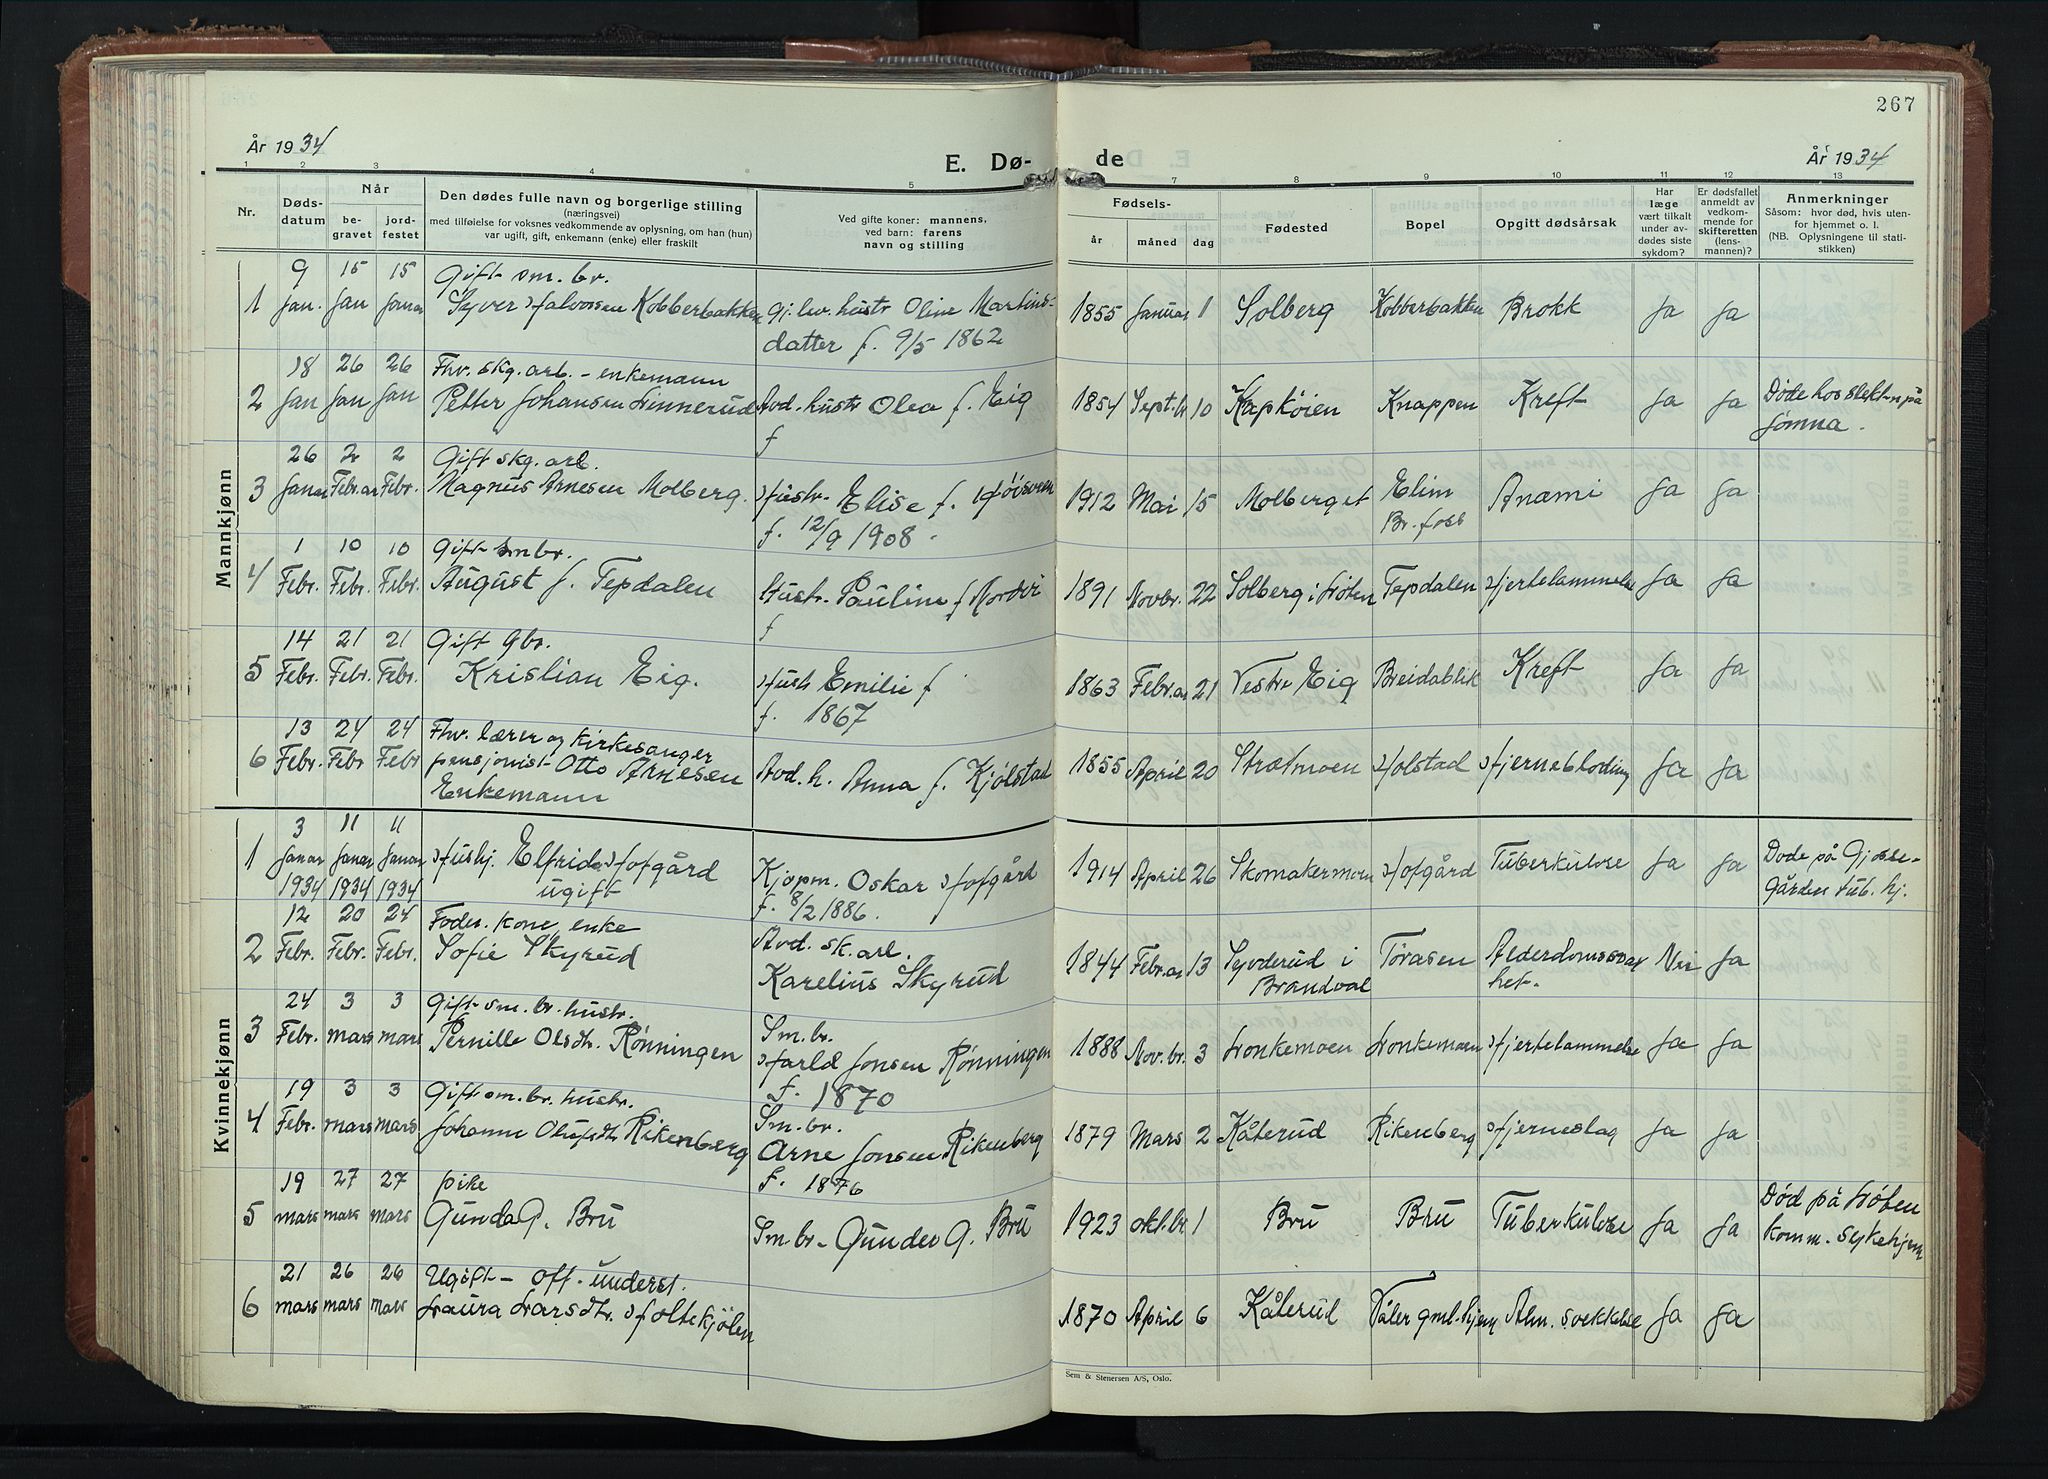 267
År 1934
E. Dø-
de
År 1934
1 2 3 4 5 7 8 9 10 11 12 13
Nr.
Døds-
datum
Når
be-
gravet
jord-
festet
Den dødes fulle navn og borgerlige stilling
(næringsvei)
med tilføielse for voksnes vedkommende av oplysning, om han (hun)
var ugift, gift, enkemann (enke) eller fraskilt
Ved gifte koner: mannens,
ved barn: farens
navn og stilling
Fødsels-
år måned dag
Fødested
Bopel
Opgitt dødsårsak
Har
læge
vært tilkalt
under av-
dødes siste
sykdom?
Er dødsfallet
anmeldt av
vedkom-
mende for
skifteretten
(lens-
mannen)?
Anmerkninger
Såsom: hvor død, hvis uten-
for hjemmet o. l.
(NB. Oplysningene til stati-
stikken)
Mannkjønn
9 15 15 Gift sm. br.
1 Jan. Jan Januar Syver Halvorsen Kobberbakken Gj. lev. hustr Oline Martins- 1855 Januar 1 Solberg Kobberbakken Brokk Ja Ja
datter f. 9/5 1862
18 26 26 Fhv. skg. arb. - enkemann
2 Jan Jan Jan Petter Johansen Linnerud Avd. hustr Olea f. Eig 1854 Sept.br 10 Kapkøien Knappen Kreft Ja Ja Døde hos slekt-n på
f Jømna.
26 2 2 Gift skg. arb.
3 Januar Febr.ar Febr. Magnus Arnesen Molberg. Hustr. Elise f. 1912 Mai 15 Molberget Elim Anæmi Ja Ja
f. 12/9 1908. Br. foss
1 10 10 Gift sm br.
4 Febr. Febr. Febr. August J. Tepdalen Hustr. Pauline f Nordvi 1891 Novbr. 22 Solberg i Løten Tepdalen Hjertelammelse Ja Ja
f
14 21 21 Gift Gbr.
5 Febr. Febr. Febr. Kristian Eig. Hustr Emilie f 1863 Febr.ar 21 Vestre Eig Breidablik Kreft Ja Ja
f. 1867
13 24 24 Fhv. lærer og kirkesanger
6 Febr. Febr. Febr pensjonist Otto Arnesen Avd. h. Anna f. Kjølstad 1855 April 20 Strætmoen Holstad Hjerneblødning Ja Ja
Enkemann
Kvinnekjønn
3 11 11
1 Januar Januar Januar Hushj. Elfrida Hofgård Kjøpm. Oskar Hofgård 1914 April 26 Skomakermoen Hofgård Tuberkulose Ja Ja Døde på Gjøsse-
1934 1934 1934 ugift f. 8/2 1886. Gården tub. hj.
12 20 24 Foder. kone, enke Avd. sk. arb.
2 Febr. Febr. Febr. Sofie Skyrud Karelius Skyrud 1844 Febr.ar 13 Syverud i Toråsen Alderdomssvak Nei Ja
Brandval het.
24 3 3 Gift sm. br. hustr. Sm. br.
3 Febr. mars mars Pernille Olsdtr. Rønningen Harld Jonsen Rønningen 1888 Nov.br. 3 Lonkemoen Lonkemoen Hjertelammelse Ja Ja
f. 1870
19 3 3 Gift sm. br. hustr. Sm. br.
4 Febr. mars mars Johanne Olufsdtr Rikenberg Arne Jonsen Rikenberg 1879 Mars 2 Kåterud Rikenberg Hjerneslag Ja Ja
f. 1876
19 27 27 pike
5 mars mars mars Gunda G. Bru Sm.br. Gunder G. Bru 1923 okt.br. 1 Bru Bru Tuberkulose Ja Ja Død på Løten
Komm. sykehjem
21 26 26 Ugift - off. underst.
6 mars mars mars Laura Larsdtr. Holtekjølen 1870 April 6 Kåterud Våler gml. hjem Alm. svekkelse Ja Ja
Sem & Stenersen A/S, Oslo.